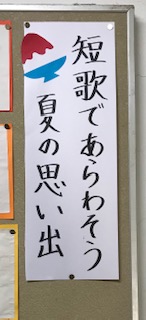 短歌であらわそう
夏の思い出